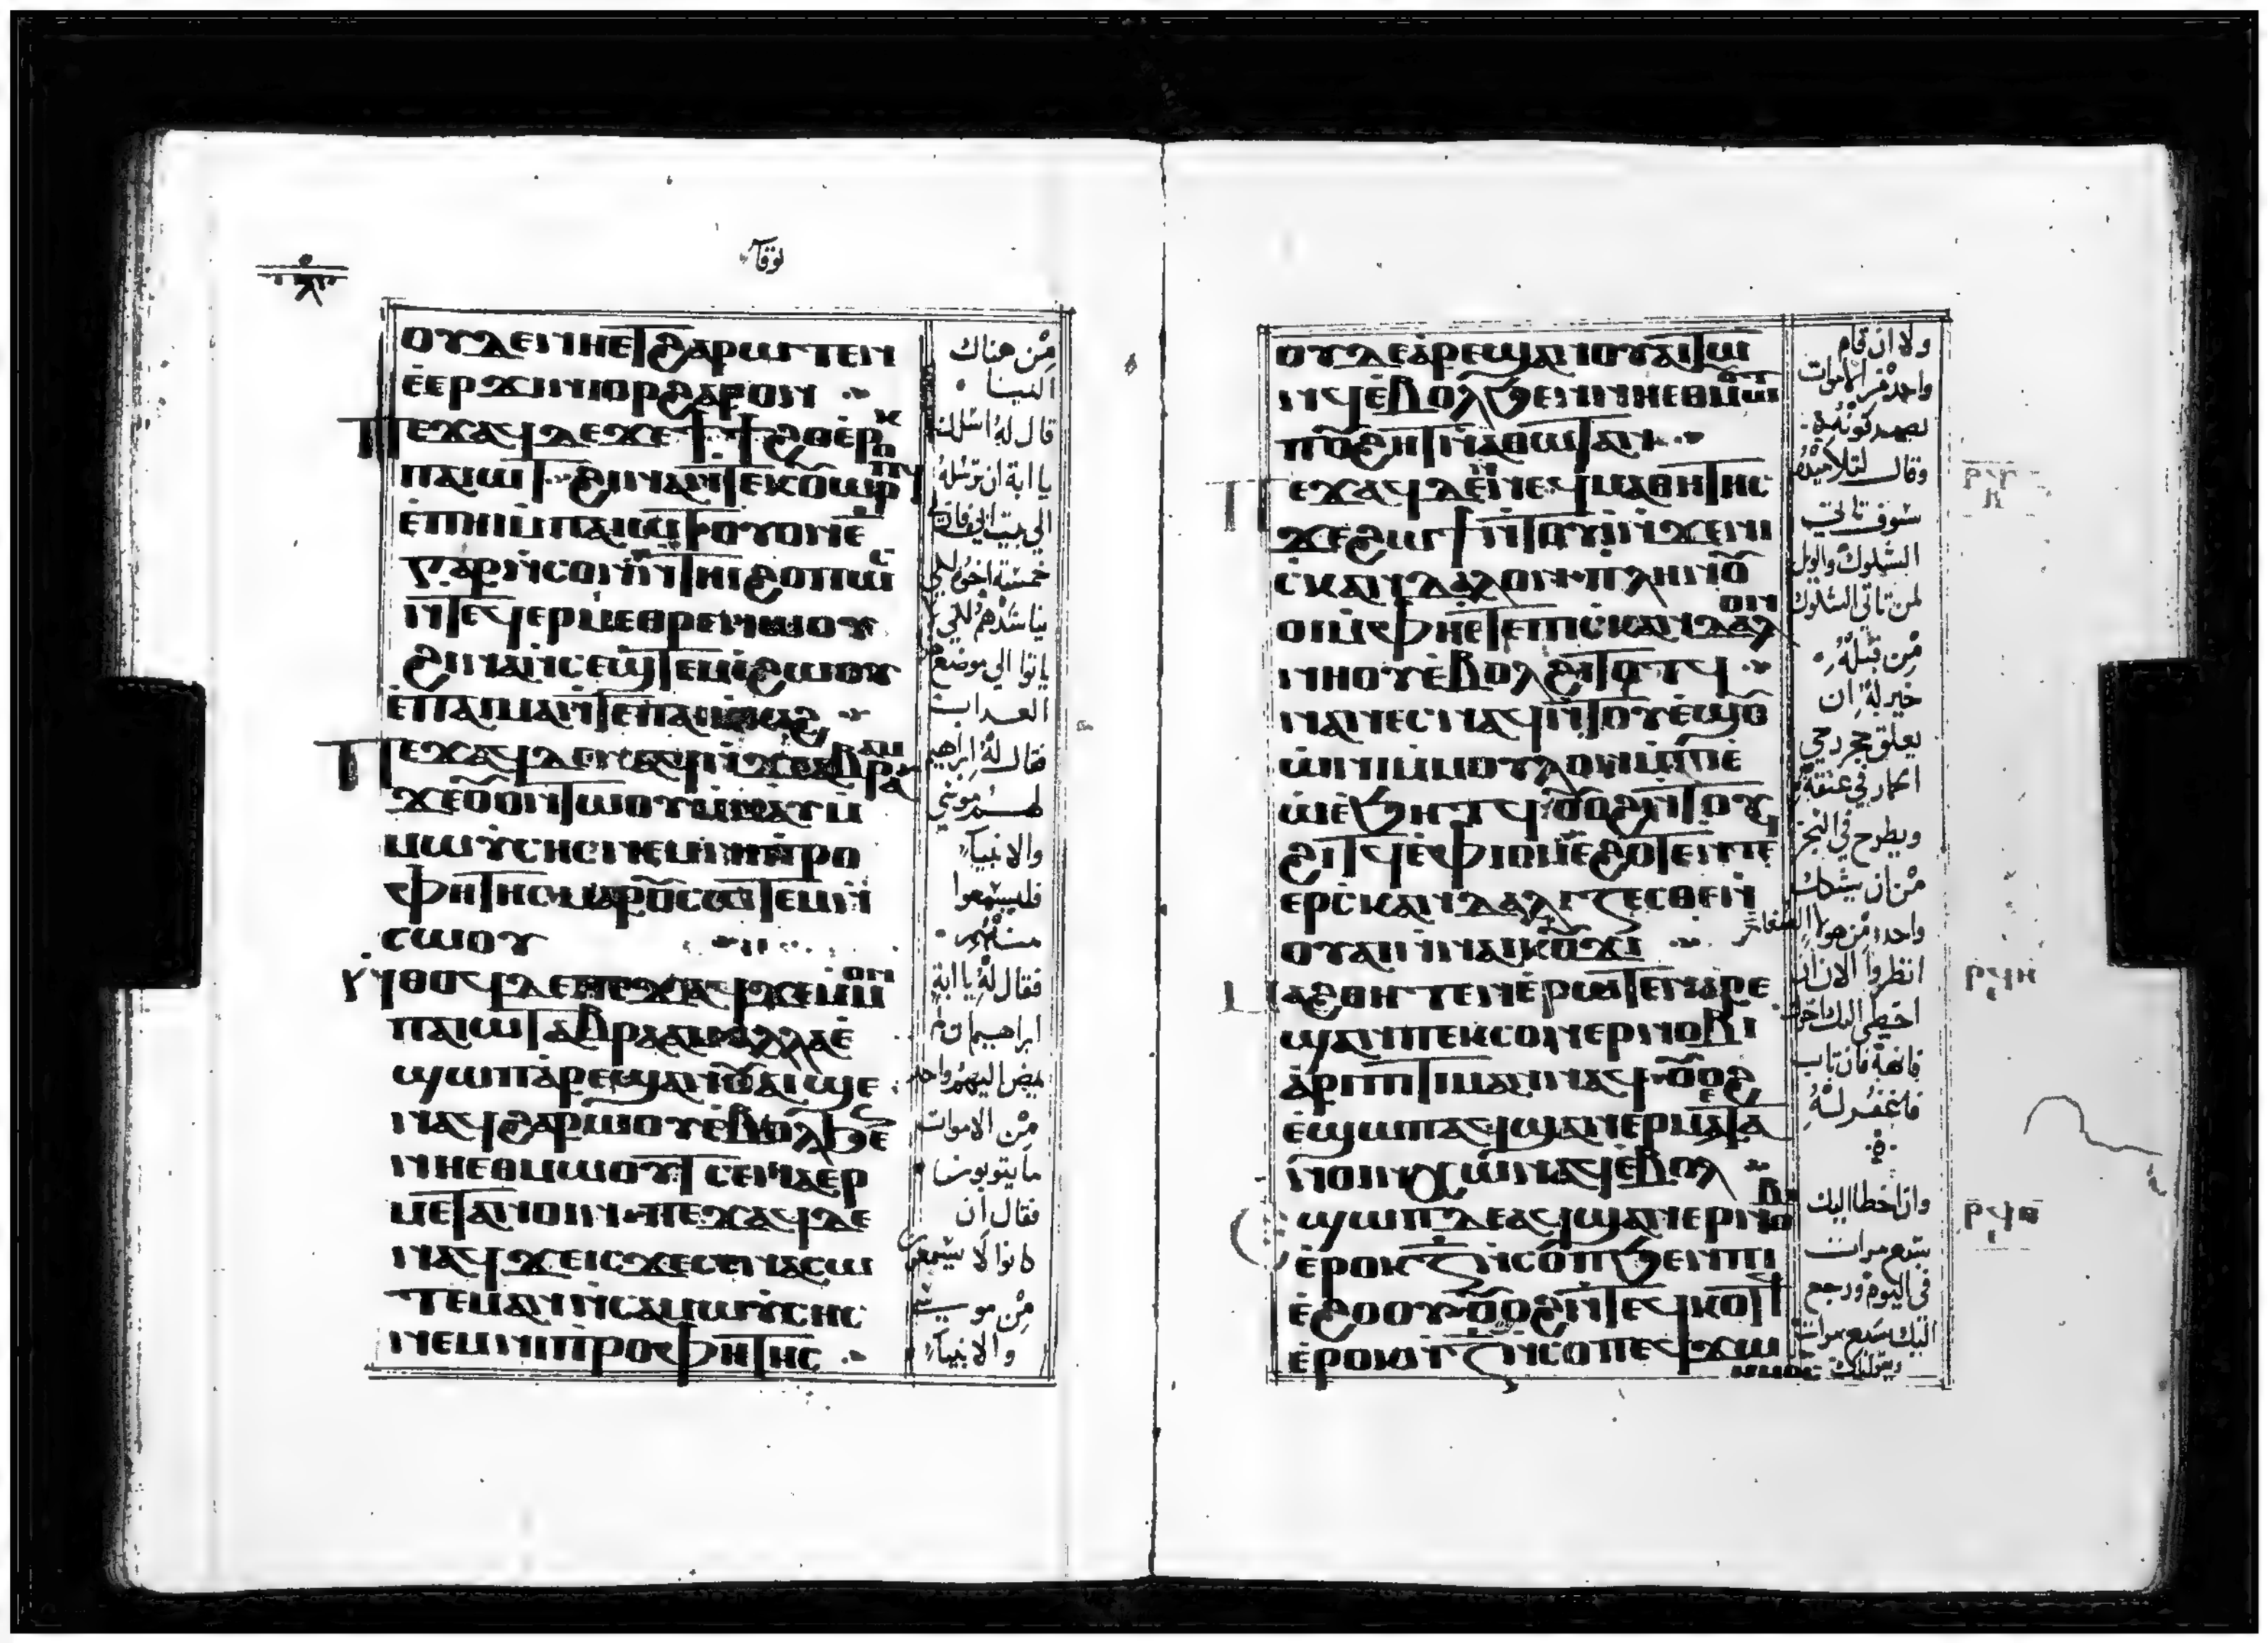 لوقا
ⲟⲩⲇⲉⲛⲏⲉⲧϩⲁⲣⲱⲧⲉⲛ
ⲉ̀ⲉⲣϫⲓⲛⲓⲟⲣϩⲁⲣⲟⲛ
ⲡⲉϫⲁϥⲇⲉϫⲉϯϯϩⲟⲉ̀ⲣⲟⲕ
ⲡⲁⲓⲱⲧϩⲓⲛⲁⲛ̀ⲧⲉⲕⲟⲩⲱⲣⲡϥ
ⲉ̀ⲡⲏⲓⲙ̀ⲡⲁⲓⲱⲧⲟⲩⲟⲛⲉ̅
ⲅⲁⲣⲛ̀ⲥⲟⲛⲛ̀ⲧⲏⲓϩⲟⲡⲱⲥ
ⲛ̀ⲧⲉϥⲉⲣⲙⲉⲑⲣⲉⲛⲱⲟⲩ
ϩⲓⲛⲁⲛ̀ⲥⲉϣⲧⲉⲙⲓ̀ϩⲱⲟⲩ
ⲉ̀ⲡⲁⲓⲙⲁⲛ̀ⲧⲉ
ⲡⲉϫⲁϥⲇⲉⲛⲁϥⲛ̀ϫⲉⲁⲃⲣⲁⲁⲙ
ϫⲉⲟⲩⲟⲛⲧⲱⲟⲩⲙ̀ⲙⲁⲩⲙ̀
ⲙⲱⲩ̀ⲥⲏⲥⲛⲉⲙⲛⲓⲡⲣⲟ
ⲫⲏⲧⲏⲥⲙⲁⲣⲟⲩⲥⲱⲧⲉⲙⲛ̀
ⲥⲱⲟⲩ
ⲛ̀ⲑⲟϥⲇⲉⲡⲉϫⲁϥϫⲉⲙ̀ⲙⲟⲛ
ⲡⲁⲓⲱⲧⲁⲃⲣⲁⲁⲙⲁⲗⲗⲁⲉ̀
ϣⲱⲡⲁ̀ⲣⲉϣⲁⲛⲟⲩⲁⲓϣⲉ
ⲛⲁϥϩⲁⲣⲱⲟⲩⲉ̀ⲃⲟⲗϧⲉ̅
ⲛⲏⲉⲑⲙⲱⲟⲩⲧⲥⲉⲛⲁⲉⲣ
ⲙⲉⲧⲁⲛⲟⲓⲛ ⲡⲉϫⲁϥⲇⲉ
ⲛⲁϥϫⲉⲓⲥϫⲉⲥⲉⲛⲁⲥⲱ
ⲧⲉⲙⲁⲛⲛ̀ⲥⲁⲙⲱⲩ̀ⲥⲏⲥ
ⲛⲉⲙⲛⲓⲡⲣⲟⲫⲏⲧⲏⲥ
من هناك
الينا
قال له اسلك
يا ابة ان ترسله
الى بيت ابى فان
خمسة اخوة لى
يناشدهم للى
ياتوا الى موضع
العداب
فقال له ابراهيم
موسى
والانبيا
فليسمعوا
منهم
فقال له يا ابة
ابراهيم
يمض اليهم واحد
من الاموات
ما يتوبون
فقال ان
كانوا لا يسمعو
من موسى
والانبيا
ⲟⲩⲇⲉⲁ̀ⲣⲉϣⲁⲛⲟⲩⲁⲓⲧⲱ
ⲛϥⲉ̀ⲃⲟⲗϧⲉⲛⲛⲏⲉⲑⲙⲱⲟⲩⲧ
ⲡⲟⲩϩⲏⲧⲛⲁⲑⲱⲧⲁⲛ
ⲡⲉϫⲁϥⲇⲉⲛ̀ⲛⲉϥⲙⲁⲑⲏⲧⲏⲥ
ϫⲉϩⲱϯⲛ̀ⲧⲟⲩⲓ̀ⲛ̀ϫⲉⲛⲓ
ⲥ̀ⲕⲁⲛⲇⲁⲗⲟⲛ ⲡⲗⲏⲛⲟⲩ
ⲟⲓⲙ̀ⲫⲏⲉ̀ⲧⲉⲡⲓⲥ̀ⲕⲁⲛⲇⲁⲗⲟⲛ
ⲛⲏⲟⲩⲉ̀ⲃⲟⲗϩⲓⲧⲟⲧϥ
ⲛⲁⲛⲉⲥⲛⲁϥⲛ̀ⲧⲟⲩⲉ̀ϣⲟⲩ
ⲱ̀ⲛⲓⲙ̀ⲙⲟⲩⲗⲟⲛⲙ̀ⲡⲉ
ⲱ̀ⲉ̀ϧⲏⲧϥⲟⲩⲟϩⲛ̀ⲧⲟⲩ
ϩⲓⲧϥⲉ̀ⲫⲓⲟⲙⲉ̀ϩⲟⲧⲉⲛⲧⲉϥ
ⲉⲣⲥ̀ⲕⲁⲛⲇⲁⲗⲓⲍⲉⲥⲑⲉⲛ̀
ⲟⲩⲁⲓⲛ̀ⲛⲁⲓⲕⲟⲩϫⲓ
ⲙⲁϩⲑⲏⲧⲉⲛⲉ̀ⲣⲱⲧⲉⲛⲁⲣⲉ
ϣⲁⲛⲡⲉⲕⲥⲟⲛⲉⲣⲛⲟⲃⲓ
ⲁ̀ⲣⲓⲉ̀ⲡⲓⲧⲓⲙⲁⲛⲛⲁϥⲟⲩⲟϩ
ⲉ̀ϣⲱⲡⲁϥϣⲁⲛⲉⲣⲙⲉⲧⲁ
ⲛⲟⲓⲛⲭⲱⲛⲁϥⲉ̀ⲃⲟⲗ
ⲉϣⲱⲡⲇⲉⲁϥϣⲁⲛⲉⲣⲛⲟⲃⲓ
ⲉ̀ⲣⲟⲕⲍ̅ⲛ̀ⲥⲟⲡϧⲉⲛⲡⲓ
ⲉ̀ϩⲟⲟⲩⲟⲩⲟϩⲛ̀ⲧⲉϥⲕⲟⲧϥ
ⲉ̀ⲣⲟⲕⲛ̀ⲍ̅ⲛ̀ⲥⲟⲡⲉϥϫⲱ
ⲙ̀ⲙⲟⲥ
ولا ان قام
واحد من الاموات
وقال لتلاميذه
سوف تاتى
الشكوك والويل
لمن تاتى الشكوك
من قبله
خير له ان
يعلق حجر رحى
الحمار فى عنقه
ويطرح فى البحر
من ان يشكك
واحد من هولا الصغار
انظروا الان ان
اخطى اليك اخوك
فانهه فان تاب
فاغفر له
وان اخطا اليك
سبع مرات
فى اليوم ورجع
اليك سبع مرات